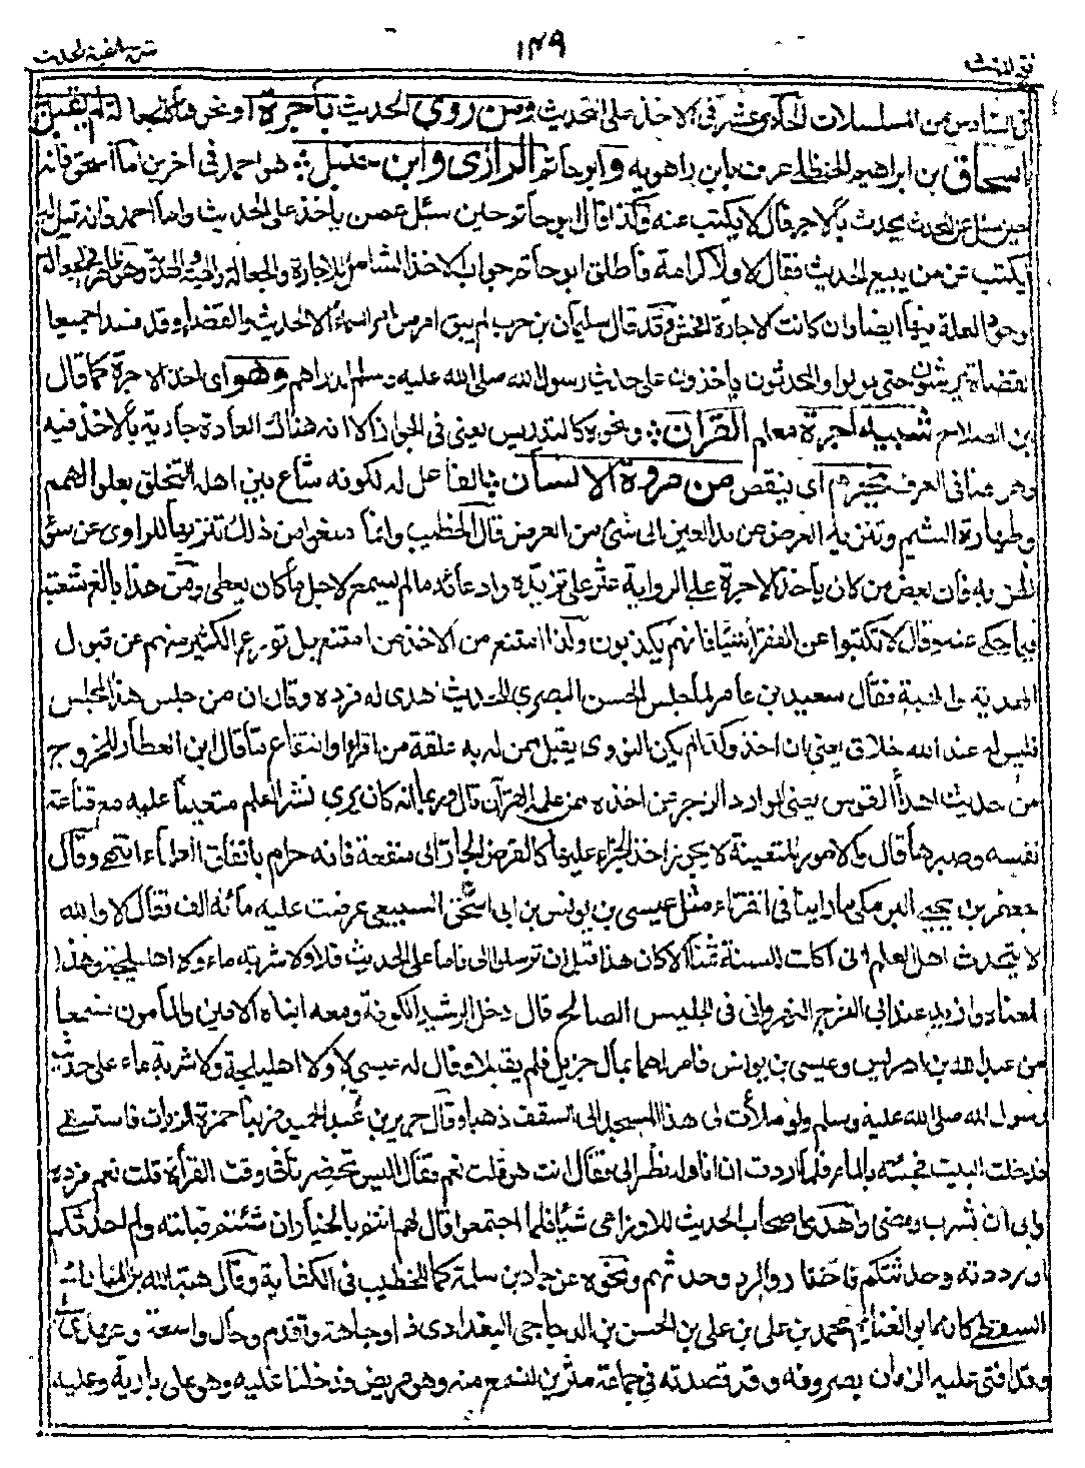 فتح المغيث
١٤٩
شرح الفية الحديث
في السادس من المسلسلات الحادي عشر في الاخذ على التحديث ومن روى الحديث باجرة او نحوها كالجعالة لم يقبل
اسحاق بن ابراهيم الحنظلي عرف بابن راهويه وابو حاتم الرازي وابن حنبل هو احمد في اخرين اما اسحق فانه
حين سئل عن المحدث يحدث بالاجر قال لا يكتب عنه وكذا قال ابو حاتم حين سئل عمن ياخذ على الحديث واما احمد فانه قيل له
ايكتب عن من يبيع الحديث فقال لا ولا كرامة فاطلق ابو حاتم جواب الاخذ الشامل للاجارة والجعالة والهبة والهدية وهو ظاهر في الجعالة
وجود العلة فيها ايضا وان كانت الاجارة افحش وقد قال سليمان بن حرب لم يبق امر من امر السماء الا الحديث والقضاء وقد فسدا جميعا
القضاة يرشون حتى يولوا والمحدثون ياخذون على حديث رسول الله صلى الله عليه وسلم الدراهم وهو اى اخذ الاجرة كما قال
ابن الصلاح شبيه اجرة معلم القران ونحوه كالتدريس يعني في الجواز الا انه هناك العادة جارية بالاخذ فيه
وهو هنا في العرف يخرم اى ينقص من مروة الانسان الفاعل له لكونه شاع بين اهله التخلق بعلو الهمم
وطهارة الشيم وتنزيه العرض عن مد العين الى شئ من العرض قال الخطيب وانما منعوا من ذلك تنزيها للراوى عن سوء
الظن به فان بعض من كان ياخذ الاجرة على الرواية عثر على تزيده وادعائه ما لم يسمع لاجل ما كان يعطى ومن هذا بالغ شعبة
فيما حكى عنه وقال لا تكتبوا عن الفقراء شيئا فانهم يكذبون ولذا امتنع من الاخذ من امتنع بل تورع الكثير منهم عن قبول
الهدية والهبة فقال سعيد بن عامر لما جلس الحسن البصري للحديث اهدى له فرده وقال ان من جلس هذا المجلس
فليس له عند الله خلاق يعني ان اخذ وكذا لم يكن النووى يقبل ممن له به علقة من اقراء وانتفاع ما قال ابن العطار للخروج
من حديث اهداء القوس يعني الوارد الزجر عن اخذه ممن علمه القرآن قال وربما انه كان يرى نشر العلم متعينا عليه مع قناعة
نفسه وصبرها قال والامور المتعينة لا يجوز اخذ الجزاء عليها كالقرض الجار الى منفعة فانه حرام باتفاق العلماء انتهى وقال
جعفر بن يحيى البرمكي ما راينا في القراء مثل عيسى بن يونس بن ابي اسحق السبيعي عرضت عليه مائة الف فقال لا والله
لا يتحدث اهل العلم اني اكلت للسنة ثمنا الا كان هذا قبل ان ترسلوا الى فاما على الحديث فلا ولا شربة ماء ولا اهليلجة وهذا
المعنى وازيد عند ابي الفرج النهرواني في الجليس الصالح قال دخل الرشيد الكوفة ومعه ابناه الامين والمامون فسمعا
من عبد الله بن ادريس وعيسى بن يونس فامر لهما بمال جزيل فلم يقبلا وقال له عيسى لا ولا اهليلجة ولا شربة ماء على حديث
رسول الله صلى الله عليه وسلم ولو ملأت لى هذا المسجد الى السقف ذهبا وقال جرير بن عبد الحميد مر بنا حمزة الزيات فاستسقى
فدخلت البيت فجئته بالماء فلما اردت ان اناوله نظر الى فقال انت هو قلت نعم فقال اليس تحضرنا في وقت القراءة قلت نعم فرده
وابى ان يشرب ومضى واهدى اصحاب الحديث للاوزاعي شيئا فلما اجتمعوا قال لهم انتم بالخيار ان شئتم قبلته ولم احدثكم
او رددته وحدثتكم فاختاروا الرد وحدثهم ونحوه عن حماد بن سلمة كما للخطيب في الكفاية وقال هبة الله بن المبارك
السقطي كان ابو الغنائم محمد بن على بن على بن الحسن بن الدجاجي البغدادى ذا وجاهة وتقدم وحال واسعة وعهدى بى
وقد اخنى عليه الزمان بصروفه وقد قصدته في جماعة مثرين لنسمع منه وهو مريض فدخلنا عليه وهو على بارية وعليه